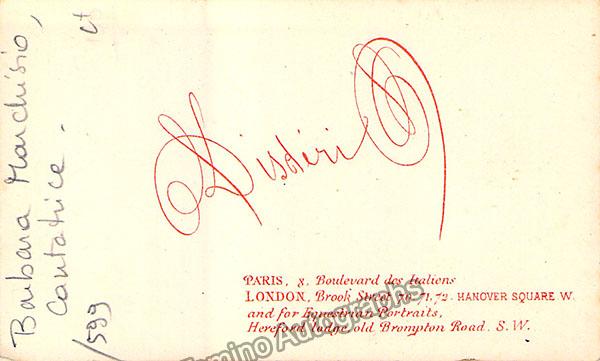 Barbara Marchisio, ct
Cantatrice.
/599
Disdéri
PARIS, 8, Boulevard des Italiens
LONDON, Brook Street 70.71.72. HANOVER SQUARE W.
and for Equestrian Portraits,
Hereford lodge, old Brompton Road. S.W.
Tamino Autographs